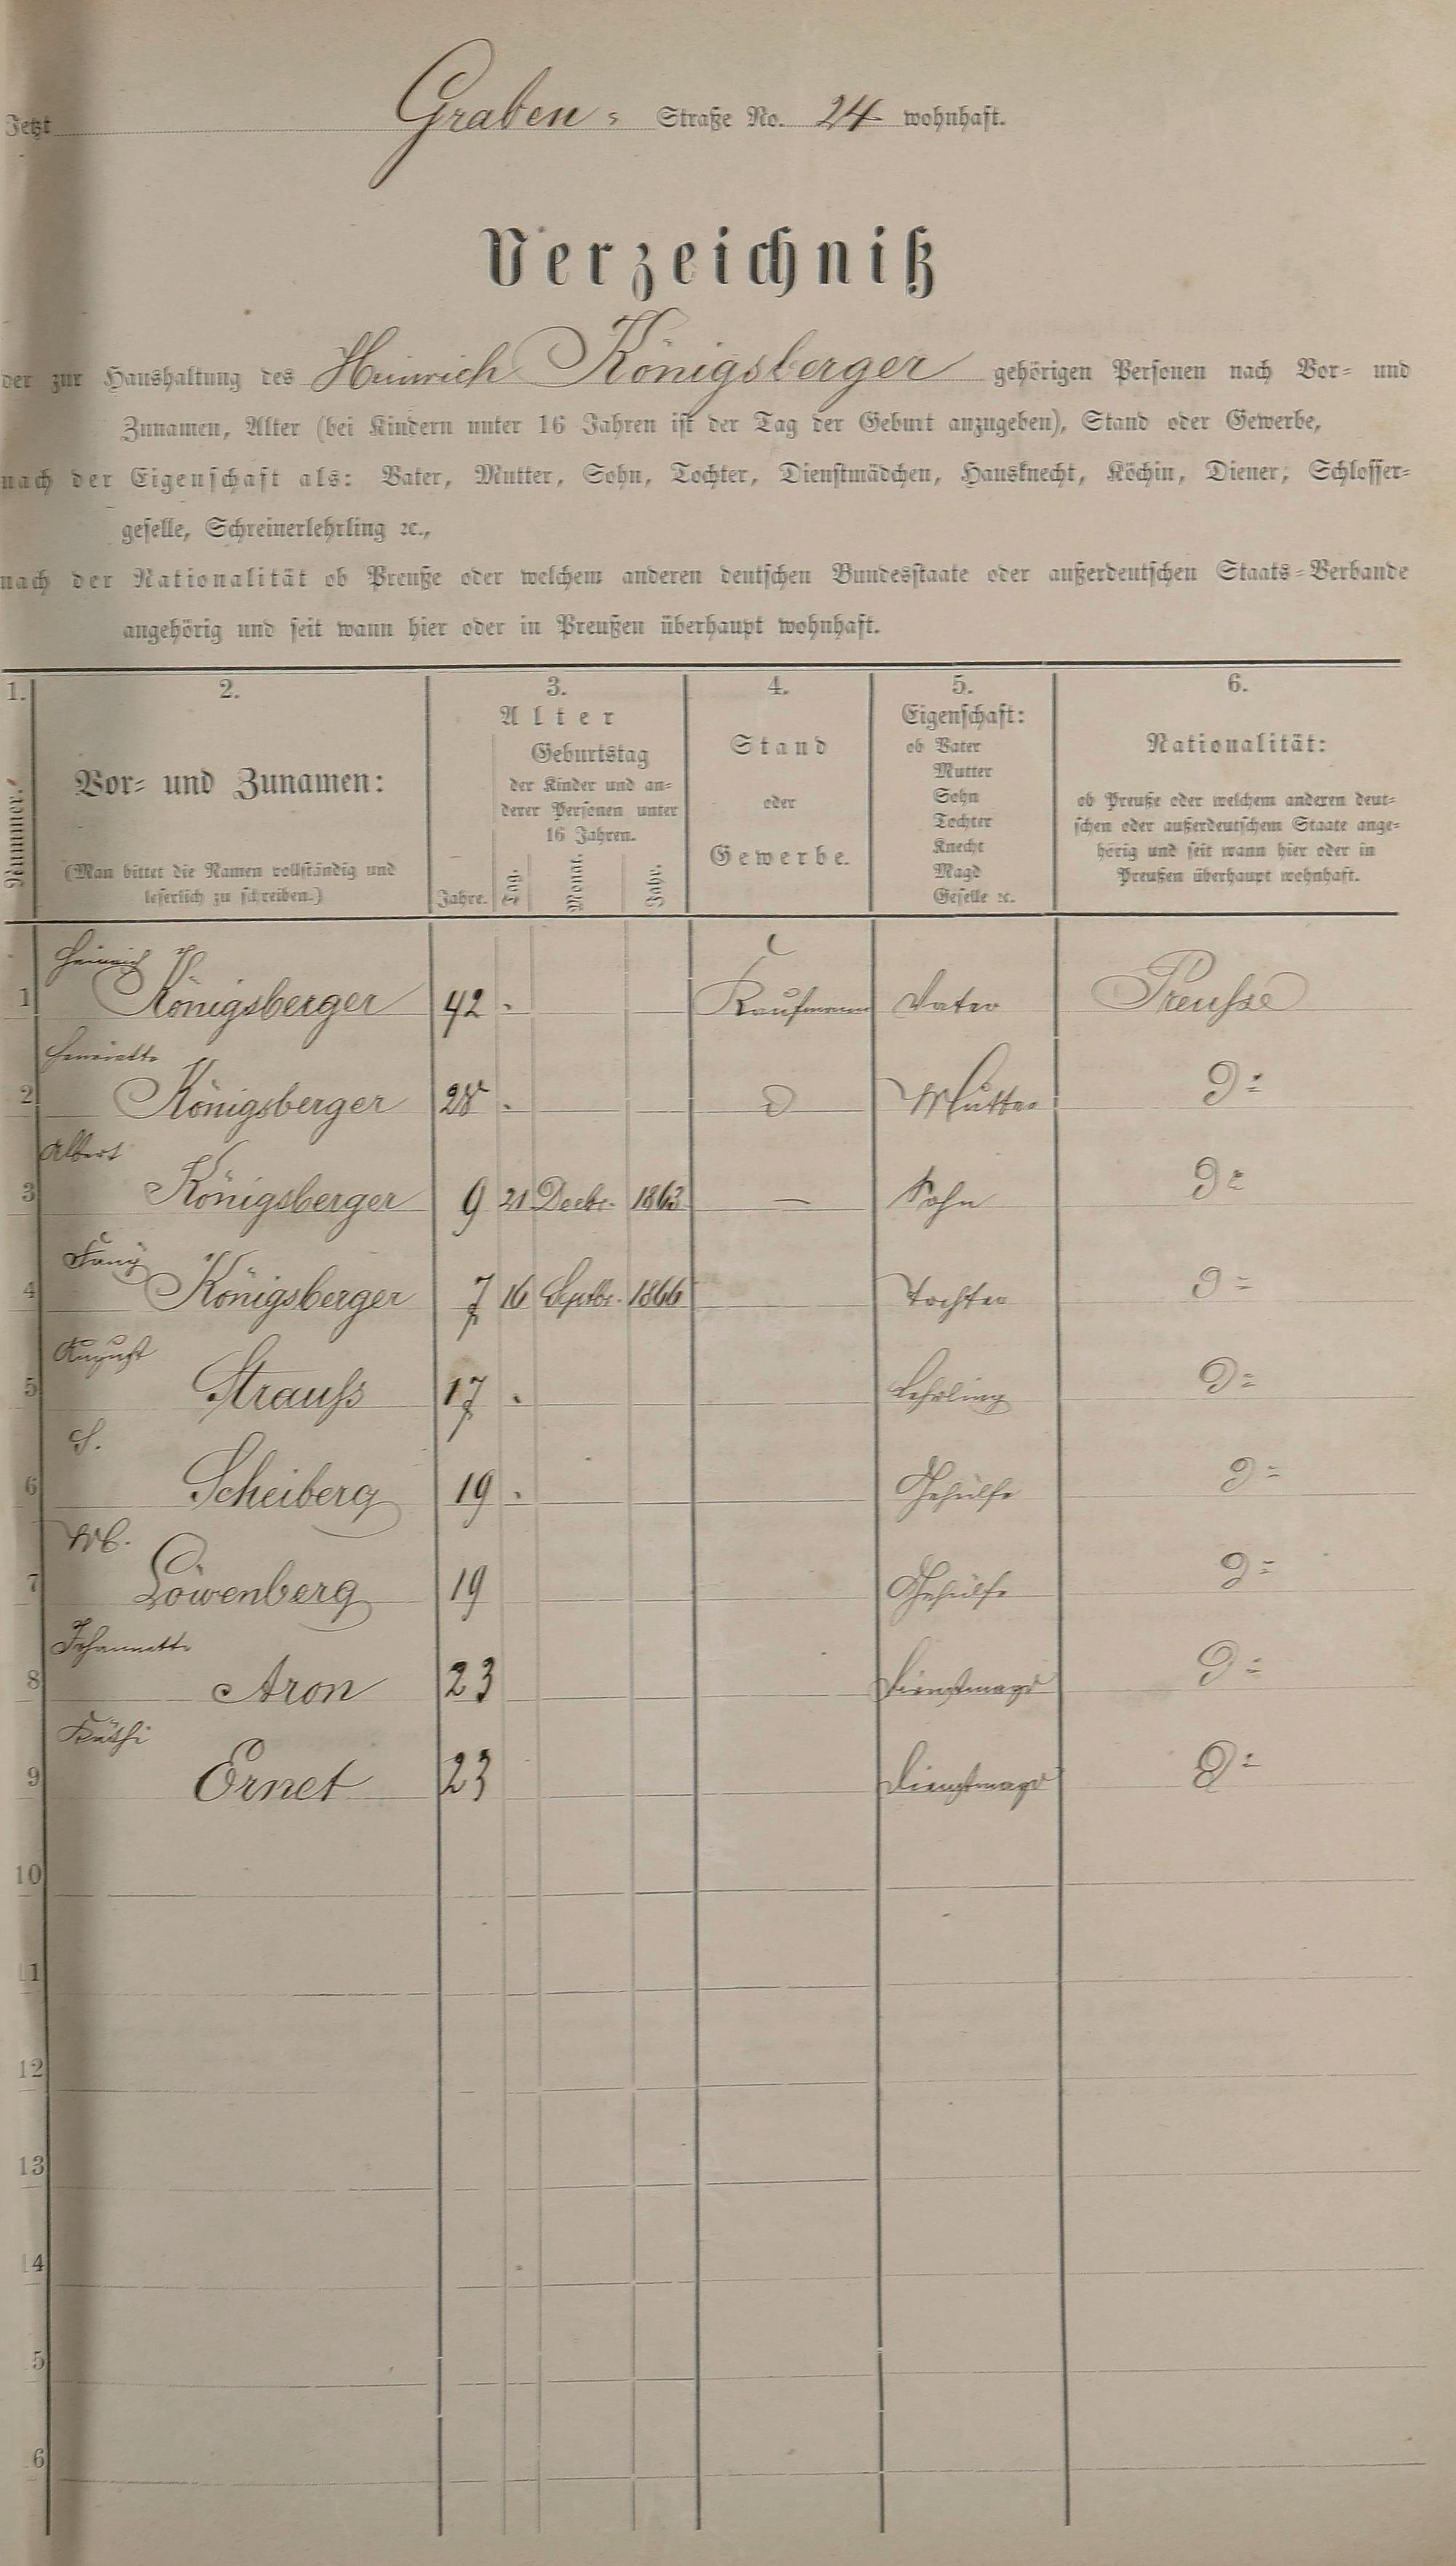 Jetzt Graben- Straße No. 24 wohnhaft.
Verzeichniß
der zur Haushaltung des Heinrich Königsberger gehörigen Personen nach Vor- und
Zunamen, Alter (bei Kindern unter 16 Jahren ist der Tag der Geburt anzugeben), Stand oder Gewerbe,
nach der Eigenschaft als: Vater, Mutter, Sohn, Tochter, Dienstmädchen, Hausknecht, Köchin, Diener, Schlosser-
geselle, Schreinerlehrling ꝛc.,
nach der Nationalität ob Preuße oder welchem anderen deutschen Bundesstaate oder außerdeutschen Staats-Verbande
angehörig und seit wann hier oder in Preußen überhaupt wohnhaft.
1. 2. 3. 4. 5. 6.
Nummer.
Vor- und Zunamen:
(Man bittet die Namen vollständig und
leserlich zu schreiben.)
Alter
Geburtstag
der Kinder und an-
derer Personen unter
16 Jahren.
Jahre. Tag. Monat. Jahr.
Stand
oder
Gewerbe.
Eigenschaft:
ob Vater
Mutter
Sohn
Tochter
Knecht
Magd
Geselle ꝛc.
Nationalität:
ob Preuße oder welchem anderen deut-
schen oder außerdeutschem Staate ange-
hörig und seit wann hier oder in
Preußen überhaupt wohnhaft.
Heinrich
1 Königsberger 42 Kaufmann Vater Preuße
Henriette
2 Königsberger 28 Mutter do
Albert
3 Königsberger 9 21 Decbr. 1863 — Sohn do
Fany
4 Königsberger 7 16 Septbr. 1866 Tochter do
August
5 Strauß 17 Lehrling do
S.
6 Scheiberg 19 Gehülfe do
M.
7 Löwenberg 19 Gehülfe do
Johannette
8 Aron 23 Dienstmagd do
Käthi
9 Ernet 23 Dienstmagd do
10
11
12
13
14
5
6